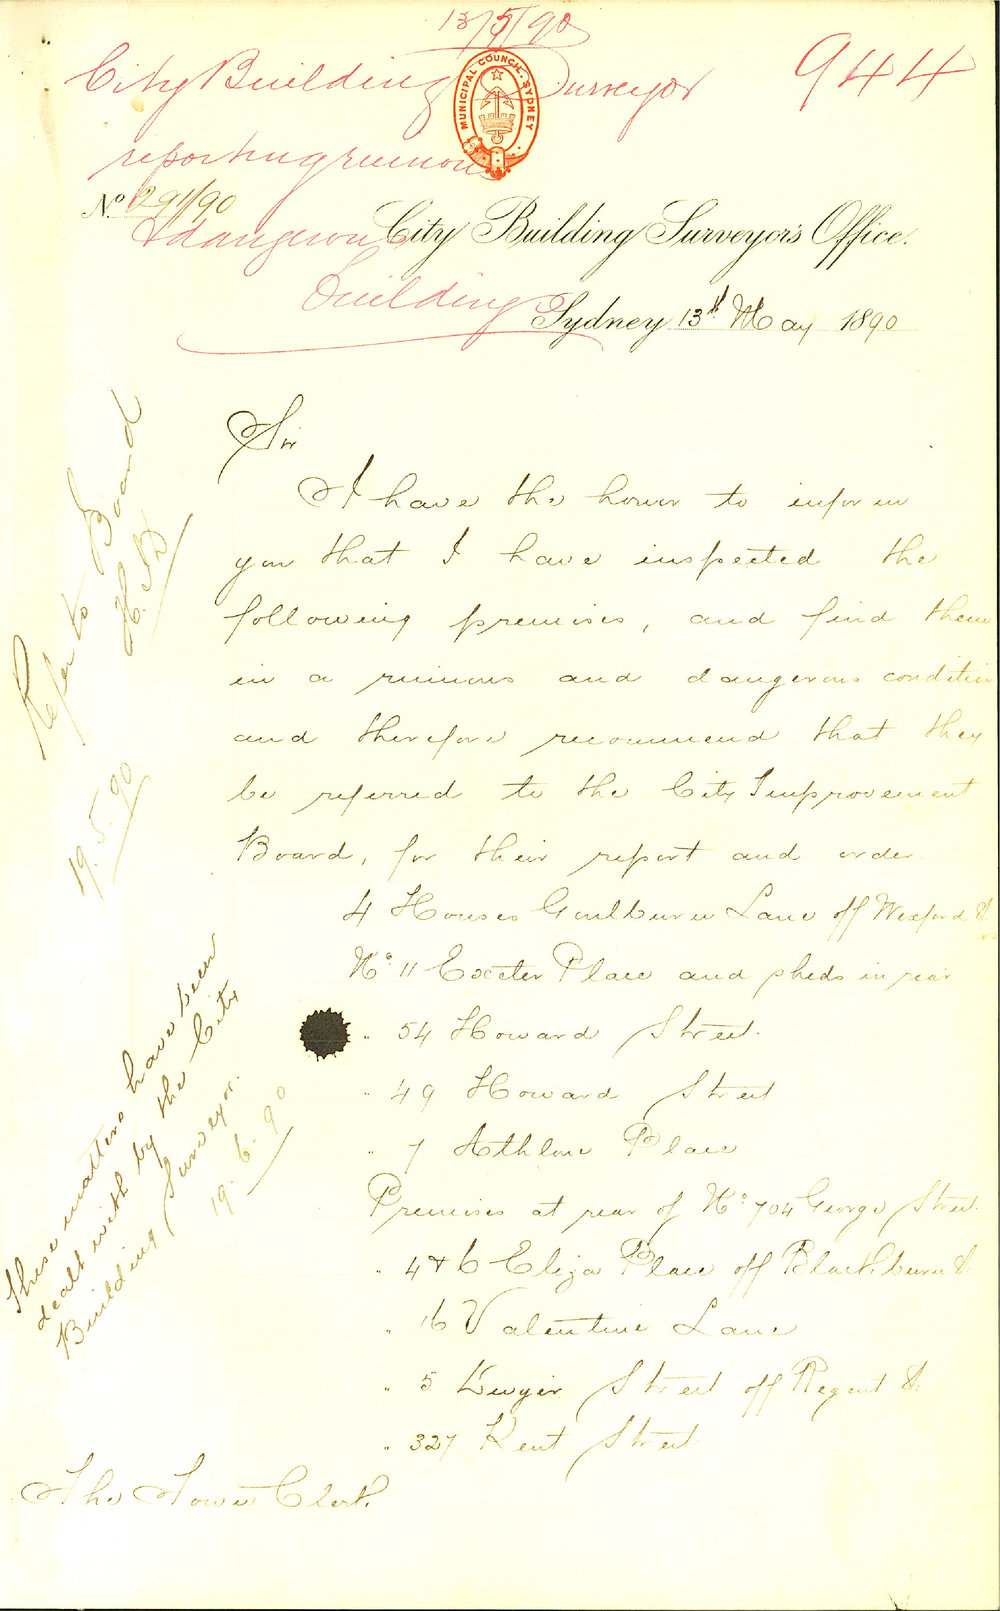 13/5/90
City Building Surveyor
944
MUNICIPAL COUNCIL. SYDNEY
reporting ruinous
No 291/90
& dangerous
City Building Surveyor's Office.
Buildings
Sydney 13th May 1890
Sir
I have the honor to inform
you that I have inspected the
following premises, and find them
in a ruinous and dangerous condition
and therefore recommend that they
be referred to the City Improvement
Board, for their report and order
4 Houses Goulburn Lane off Wexford St.
No. 11 Exeter Place and sheds in rear
" 54 Howard Street.
" 49 Howard Street
" 7 Athlone Place
Premises at rear of No. 704 George Street.
" 4 & 6 Eliza Place off Blackburn St.
" 16 Valentine Lane
" 5 Dwyer Street off Regent St.
" 327 Kent Street.
The Town Clerk.
Refer to Board
19.5.90
These matters have been
dealt with by the City
Building Surveyor.
19.6.90